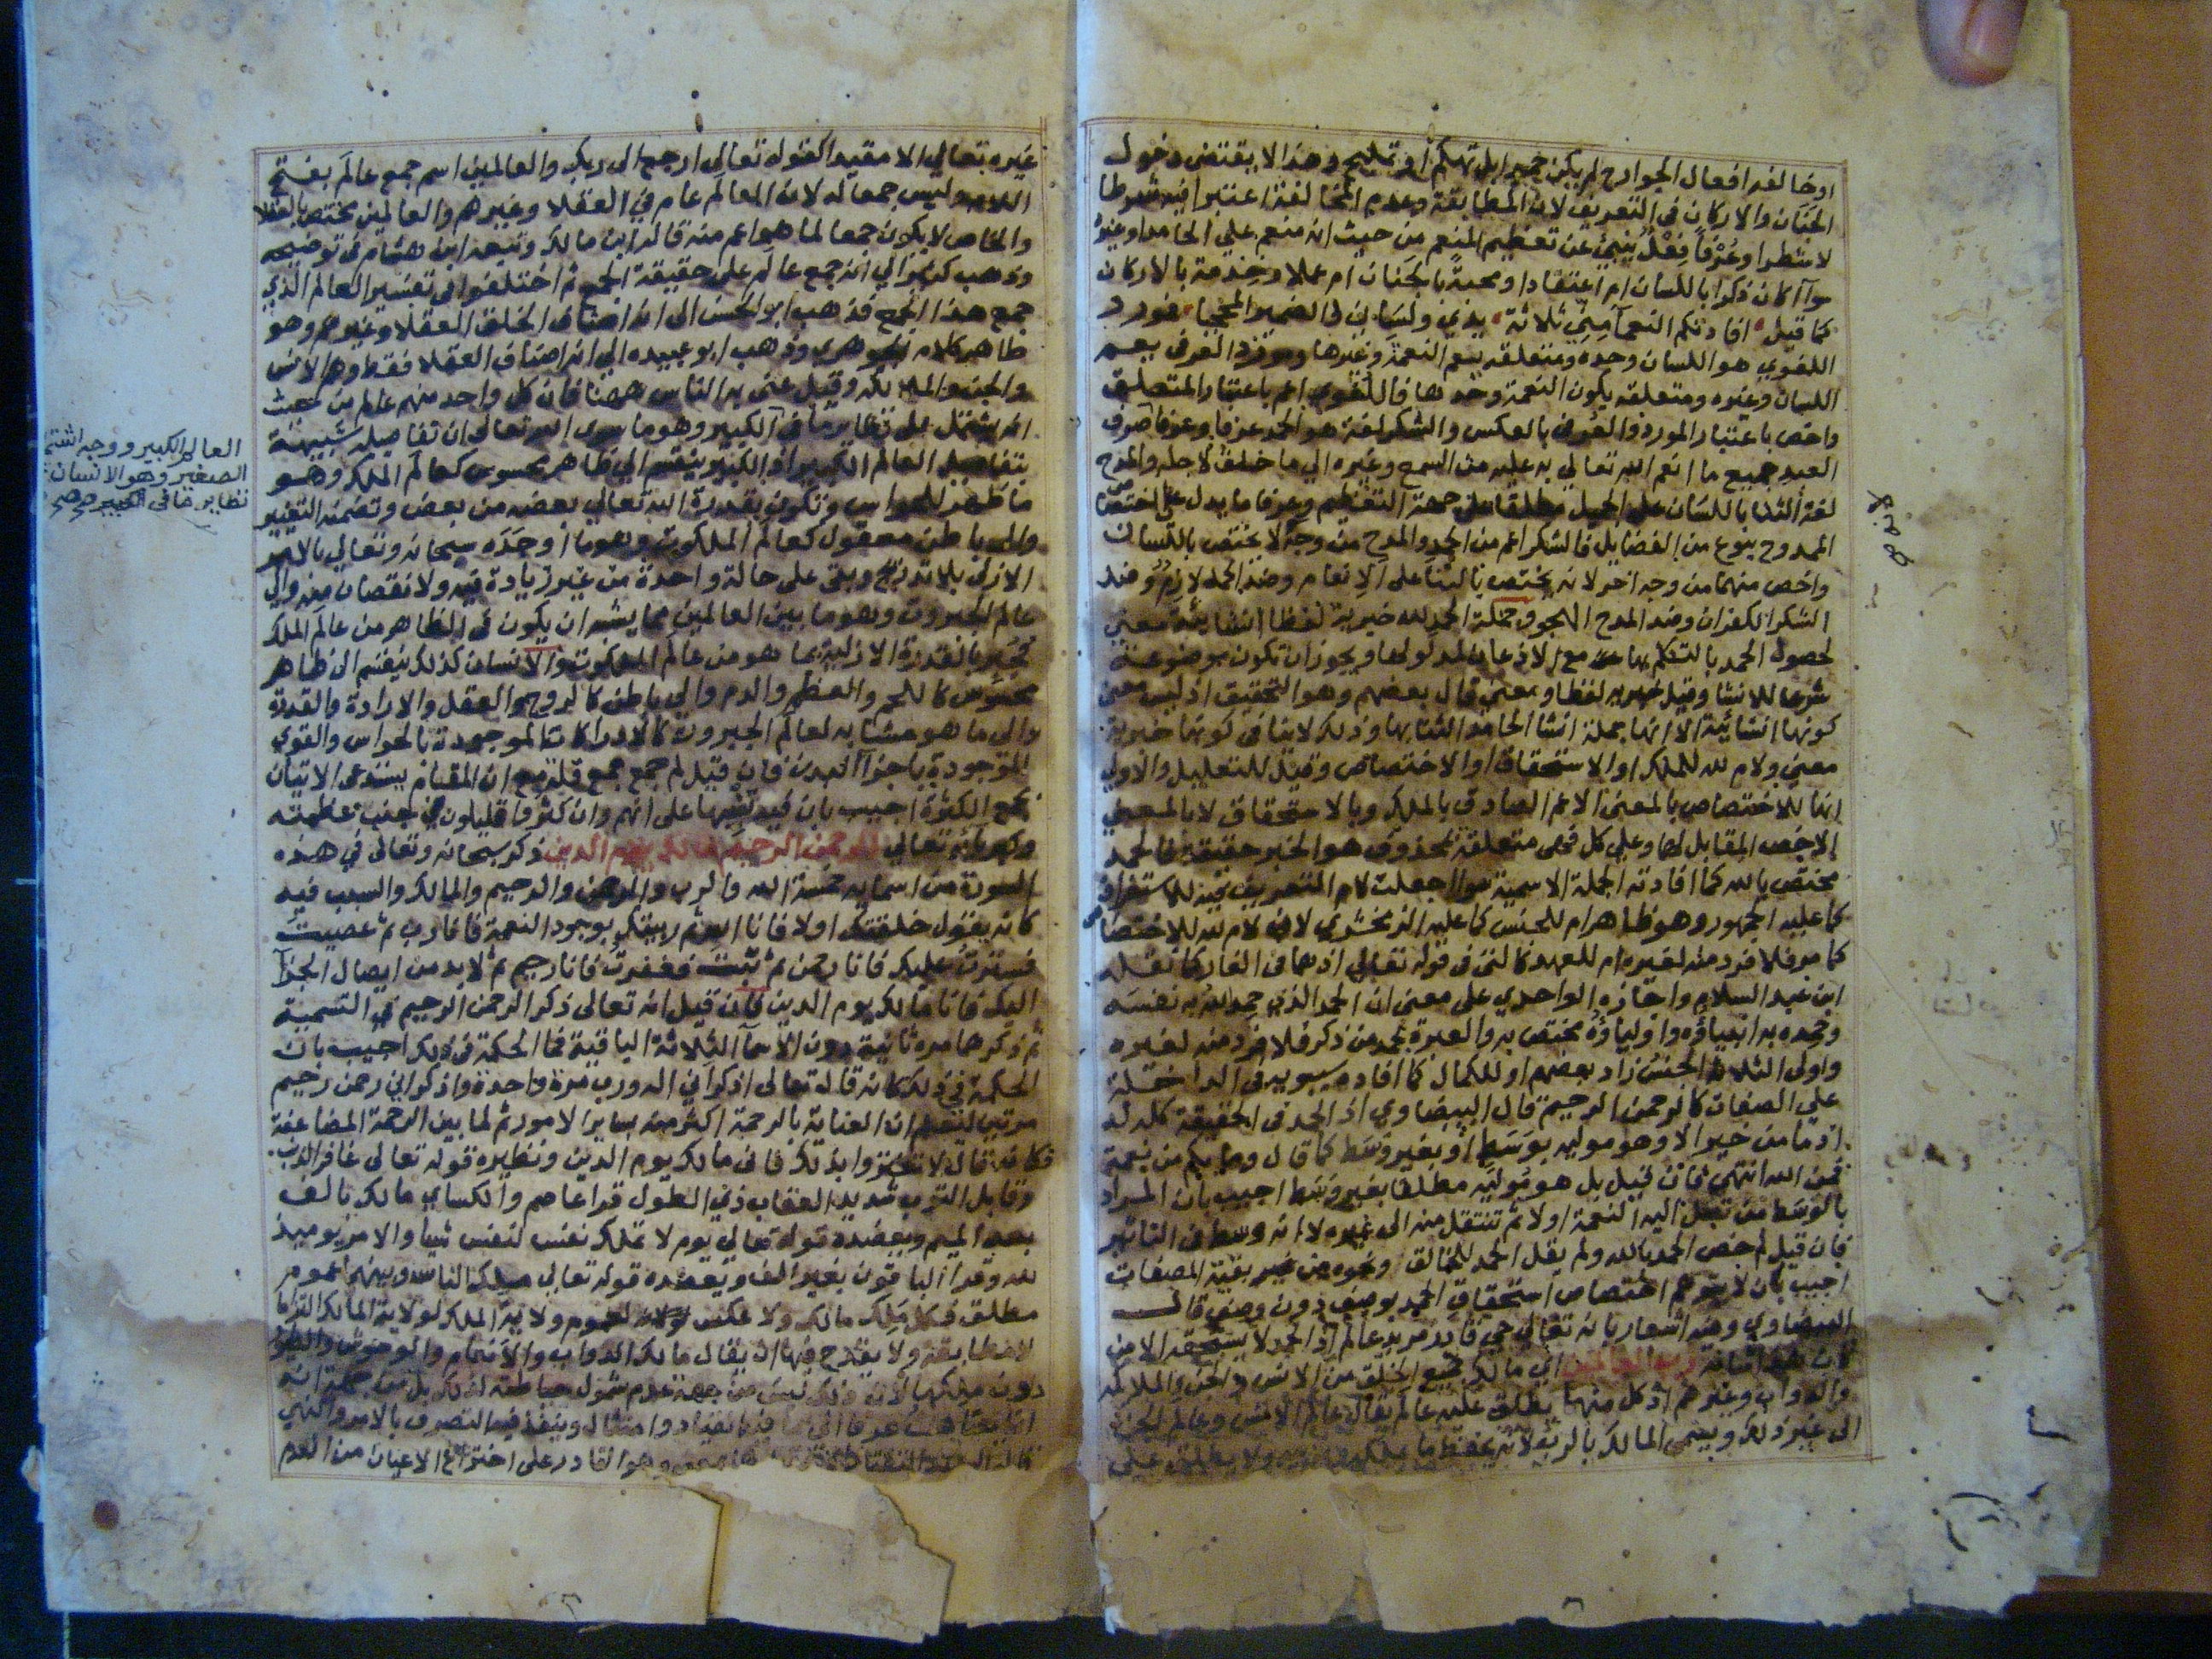 او خالفه افعال الجوارح لم يكن حمدا بل تهكم او تمليح وهذا لا يقتضى دخول
الجنان والاركان فى التعريف لان المطابقة وعدم المخالفة اعتبرا فيه شرطا
لا شطرا وعرفا فعل ينبئ عن تعظيم المنعم من حيث انه منعم على الحامد او غيره
سوآ كان ذكرا باللسان ام اعتقادا ومحبة بالجنان ام عملا وخدمة بالاركان
كما قيل افادتكم النعمآ منى ثلاثة يدى ولسانى والضمير المحجبا فمورد
اللغوى هو اللسان وحده ومتعلقه يعم النعمة وغيرها ومورد العرفى يعم
اللسان وغيره ومتعلقه يكون النعمة وحدها فاللغوى اعم باعتبار المتعلق
واخص باعتبار المورد والعرفى بالعكس والشكر لغة هو الحمد عرفا وعرفا صرف
العبد جميع ما انعم الله تعالى به عليه من السمع وغيره الى ما خلق لاجله والمدح
لغة الثنا باللسان على الجميل مطلقا على جهة التعظيم وعرفا ما يدل على اختصاص
الممدوح بنوع من الفضايل فالشكر اعم من الحمد والمدح من وجه لانه لا يختص باللسان
واخص منهما من وجه اخر لانه يختص بالثنا على الانعام وضد الحمد الذم وضد
الشكر الكفران وضد المدح الهجو وجملة الحمد لله خبرية لفظا انشائية معنى
لحصول الحمد بالتكلم بها مع الاذعان لمدلولها ويجوز ان تكون موضوعة
شرعا للانشا وقيل خبرية لفظا ومعنى قال بعضهم وهو التحقيق اذ ليس معنى
كونها انشائية الا انها جملة انشا الحامد الثنا بها وذلك لا ينافى كونها خبرية
معنى ولام لله للملك او الاستحقاق او الاختصاص وقيل للتعليل والاولى
انها للاختصاص بالمعنى الاعم الصادق بالملك وبالاستحقاق لا بالمعنى
الاخص المقابل لهما وعلى كل فهى متعلقة بمحذوف هو الخبر حقيقة فالحمد
مختص بالله كما افادته الجملة الاسمية سوآ جعلت لام التعريف فيه للاستغراق
كما عليه الجمهور وهو ظاهر ام للجنس كما عليه الزمخشرى لان لام لله للاختصاص
كما مر فلا فرد منه لغيره ام للعهد كالتى فى قوله تعالى اذ هما فى الغار كما نقله
ابن عبد السلام واجازه الواحدى على معنى ان الحمد الذى حمد الله به نفسه
وحمده به انبياؤه واولياؤه مختص به والعبرة بحمد من ذكر فلا فرد منه لغيره
واولى الثلاثة الجنس زاد بعضهم او للكمال كما افاده سيبويه فى الداخلة
على الصفات كالرحمن الرحيم قال البيضاوى اذ الحمد فى الحقيقة كله له
اذ ما من خير الا وهو موليه بوسط او بغير وسط كما قال وما بكم من نعمة
فمن الله انتهى فان قيل بل هو موليه مطلقا بغير وسط اجيب بان المراد
بالوسط من تصل اليه النعمة اولا ثم تنتقل منه الى غيره لا انه وسط فى التاثير
فان قيل لم خص الحمد بالله ولم يقل الحمد للخالق ونحوه من بقية الصفات
اجيب بان لا يتوهم اختصاص استحقاق الحمد بوصف دون وصف قال
البيضاوى وفيه اشعار بانه تعالى حى قادر مريد عالم اذ الحمد لا يستحقه الا من
كان هذا شانه رب العالمين اى مالك جميع الخلق من الانس والجن والملائكة
والدواب وغيرهم اذ كل منها يطلق عليه عالم يقال عالم الانس وعالم الجن
الى غير ذلك وسمى المالك بالرب لانه يحفظ ما يملكه ويربيه ولا يطلق على
غيره تعالى الا مقيدا كقوله تعالى ارجع الى ربك والعالمين اسم جمع عالم بفتح
اللام وليس جمعا له لان العالم عام فى العقلا وغيرهم والعالمين مختص بالعقلا
والخاص لا يكون جمعا لما هو اعم منه قاله ابن مالك وتبعه ابن هشام فى توضيحه
وذهب كثير الى انه جمع عالم على حقيقة الجمع ثم اختلفوا فى تفسير العالم الذى
جمع هذا الجمع فذهب ابو الحسن الى انه اصناف الخلق العقلا وغيرهم وهو
ظاهر كلام الجوهرى وذهب ابو عبيده الى انه اصناف العقلا فقط وهم الانس
والجن والملائكة وقيل عنى به الناس ههنا فان كل واحد منهم عالم من حيث
انه يشتمل على نظاير ما فى الكبير وهو ما سوى الله تعالى ان تفاصيله شبيهة
بتفاصيل العالم الكبير اذ الكبير ينقسم الى ظاهر محسوس كعالم الملك وهو
ما ظهر للحواس وتكون بقدرة الله تعالى بعضه من بعض وتضمنه التغيير
والى باطن معقول كعالم الملكوت وهو ما اوجده سبحانه وتعالى بالامر
الازلى بلا تدريج وبقى على حالة واحدة من غير زيادة فيه ولا نقصان منه والى
عالم الجبروت وهو ما بين العالمين مما يشبه ان يكون فى الظاهر من عالم الملك
فجبر بالقدرة الازلية بما هو من عالم الملكوت والانسان كذلك ينقسم الى ظاهر
محسوس كاللحم والعظم والدم والى باطن كالروح والعقل والارادة والقدرة
والى ما هو مشابه لعالم الجبروت كالادراكات الموجودة بالحواس والقوى
الموجودة باجزآ البدن فان قيل لم جمع جمع قلة مع ان المقام يستدعى الاتيان
بجمع الكثرة اجيب بان فيه تنبيها على انهم وان كثروا قليلون فى جنب عظمته
وكبريائه تعالى الرحمن الرحيم مالك يوم الدين ذكر سبحانه وتعالى فى هذه
السورة من اسمايه خمسة الله والرب والرحمن والرحيم والمالك والسبب فيه
كانه يقول خلقتك اولا فانا اله ثم ربيتك بوجود النعمة فانا رب ثم عصيت
فسترت عليك فانا رحمن ثم تبت فغفرت فانا رحيم ثم لا بد من ايصال الجزآ
اليك فانا مالك يوم الدين فان قيل انه تعالى ذكر الرحمن الرحيم فى التسمية
ثم ذكرهما مرة ثانية دون الاسمآ الثلاثة الباقية فما الحكمة فى ذلك اجيب بان
الحكمة فى ذلك كانه قال تعالى اذكر انى اله ورب مرة واحدة واذكر انى رحمن رحيم
مرتين لتعلم ان العناية بالرحمة اكثر منه بساير الامور ثم لما بين الرحمة المضاعفة
فكانه قال لا تغتروا بذلك فانى مالك يوم الدين ونظيره قوله تعالى غافر الذنب
وقابل التوب شديد العقاب ذى الطول قرا عاصم والكساى مالك بالف
بعد الميم ويعضده قوله تعالى يوم لا تملك نفس لنفس شيا والامر يوميذ
لله وقرا الباقون بغير الف ويعضده قوله تعالى ملك الناس وبينهما عموم
مطلق فكل ملك مالك ولا عكس لعموم ولاية الملك لولاية المالك التزاما
لا مطابقة ولا يقدح فيها انه يقال مالك الدواب والانعام والوحوش والطير
دون ملكها لان ذلك ليس من جهة عدم شمول حياطته لذلك بل من جهة انه
انما يضاف عرفا الى ما فيه انقياد وامتثال وينفذ فيه التصرف بالامر والنهى
وهو القادر على اختراع الاعيان من العدم
العالم الكبير ووجه اشتما
الصغير وهو الانسان
نظاير ما فى الكبير صح صح